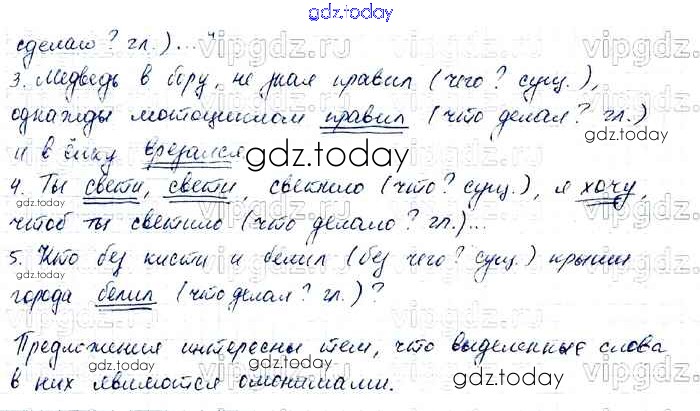 gdz.today
сделало? гл.)..."
3. Медведь в бору, не зная правил (чего? сущ.),
однажды мотоциклом правил (что делал? гл.)
и в ёлку врезался.
gdz.today
4. Ты свети, свети, светило (что? сущ.), я хочу,
чтоб ты светило (что делало? гл.)...
5. Кто без кисти и белил (без чего? сущ.) крыши
города белил (что делал? гл.)?
Предложения интересны тем, что выделенные слова
в них являются омонимами.
gdz.today
gdz.today
gdz.today
vipgdz.ru